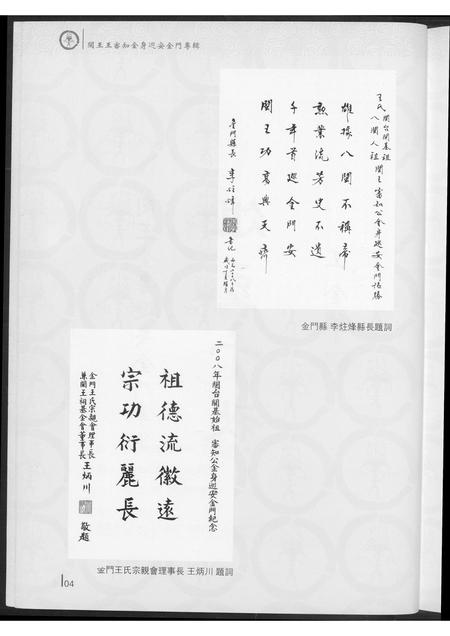 閩王王審知金身巡安金門專輯
王氏開台開基祖
入閩人祖 閩王審知公金身巡安金門誌勝
雄據八閩不稱帝
勲業流芳史不遺
千年首巡金門安
閩王功高與天齊
金門縣長 李炷烽
敬
金門縣 李炷烽縣長題詞
二00八年開台開基始祖 審知公金身巡安金門紀念
祖德流徽遠
宗功衍麗長
金門王氏宗親會理事長
兼閩王祠基金會董事長 王炳川
敬題
金門王氏宗親會理事長 王炳川 題詞
04